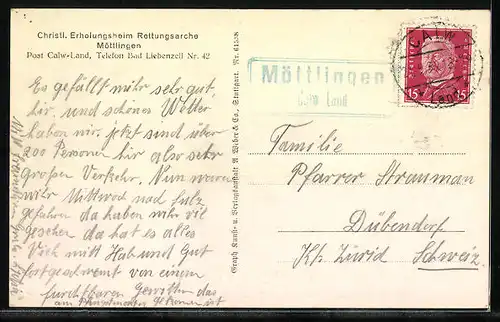 Christl. Erholungsheim Rettungsarche
Möttlingen
Post Calw-Land, Telefon Bad Liebenzell Nr. 42
Es gefällt mihr sehr gut
hir, und schönes Wetter
haben mir, jetzt sind über
200 Personen hir also sehr
großen Verkehr. Nun waren
mihr Mittwoch nad
gefahren da haben mihr vil
gesehen da hat es alles
Vich mitt Hab und Gut
fortgeschwemt von einem
furchtbaren Gewitter das
am ist
Graph. Kunst- u. Verlagsanstalt A. Weber & Co., Stuttgart. Nr. 61558
Möttlingen
Calw Land
CALW
Land
15 15
Familie
Pfarrer Strauman
Dübendorf
Kt. Zürid Schweiz.